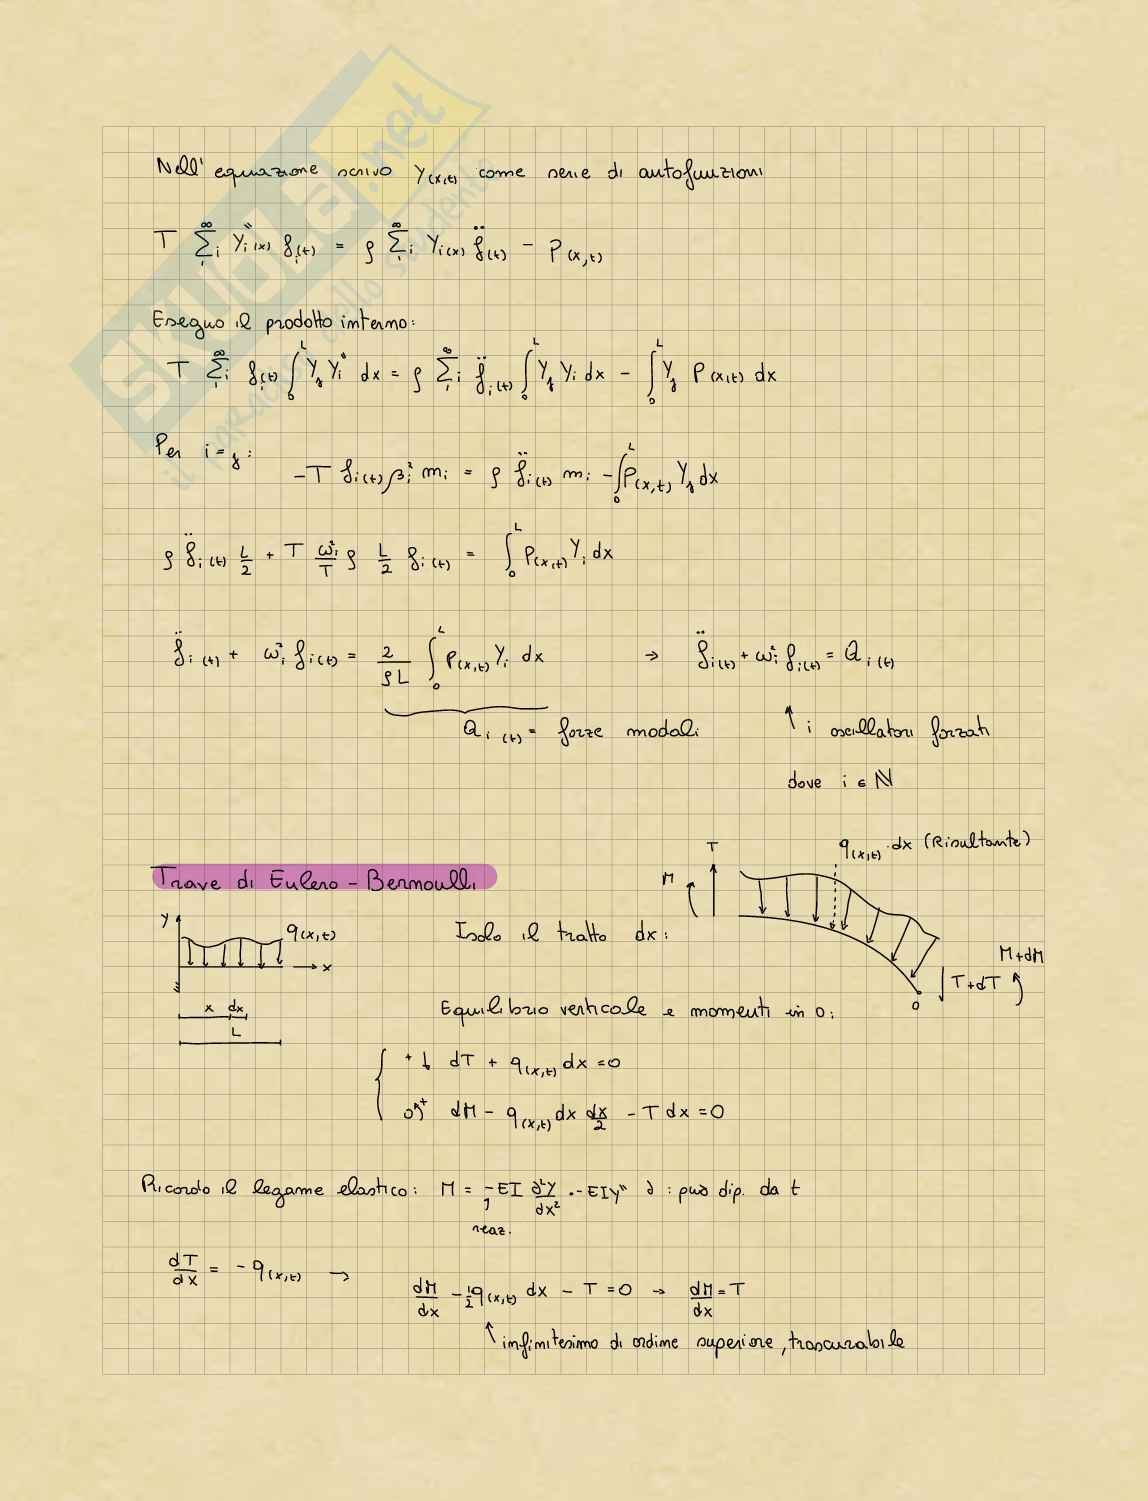 SKUOLA.net
il paradiso dello studente
Nell' equazione scrivo Y(x,t) come serie di autofunzioni
T Σᵢ₁^∞ Yᵢ''(x) fᵢ(t) = ρ Σᵢ₁^∞ Yᵢ(x) f̈ᵢ(t) - P(x,t)
Eseguo il prodotto interno:
T Σᵢ₁^∞ fᵢ(t) ∫₀^L Yⱼ Yᵢ'' dx = ρ Σᵢ₁^∞ f̈ᵢ(t) ∫₀^L Yⱼ Yᵢ dx - ∫₀^L Yⱼ P(x,t) dx
Per i = j:
-T fᵢ(t) βᵢ² mᵢ = ρ f̈ᵢ(t) mᵢ - ∫₀^L P(x,t) Yⱼ dx
ρ f̈ᵢ(t) L/2 + T ωᵢ²/T ρ L/2 fᵢ(t) = ∫₀^L P(x,t) Yᵢ dx
f̈ᵢ(t) + ωᵢ² fᵢ(t) = 2/ρL ∫₀^L P(x,t) Yᵢ dx → f̈ᵢ(t) + ωᵢ² fᵢ(t) = Qᵢ(t)
Qᵢ(t) = forze modali ↑ i oscillatori forzati
dove i ∈ ℕ
q(x,t) · dx (Risultante)
T
M
Trave di Eulero - Bernoulli
y
q(x,t)
x
Isolo il tratto dx:
M+dM
T+dT
0
x dx
L
Equilibrio verticale e momenti in 0:
+ ↓ dT + q(x,t) dx = 0
0↶+ dM - q(x,t) dx dx/2 - T dx = 0
Ricordo il legame elastico: M = -EI ∂²y/dx² = -EIy'' ∂ : può dip. da t
reaz.
dT/dx = - q(x,t) → dM/dx - 1/2 q(x,t) dx - T = 0 → dM/dx = T
↑ infinitesimo di ordine superiore, trascurabile